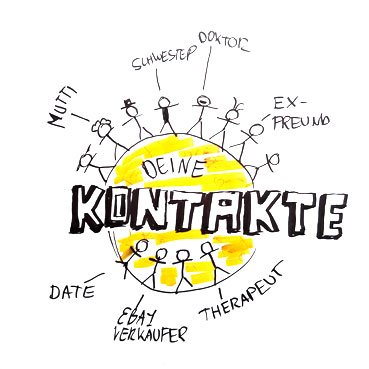 MUTTI
SCHWESTER
DOKTOR
EX-
FREUND
DEINE
KONTAKTE
DATE
EBAY
VERKÄUFER
THERAPEUT